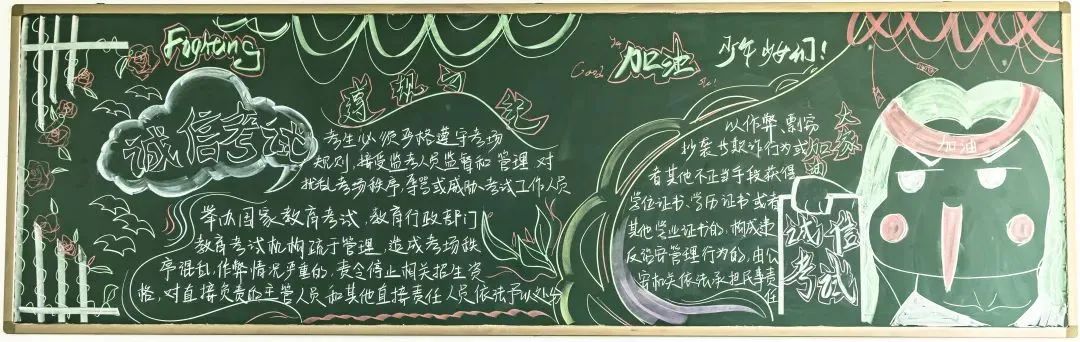 Fighting
诚信考试
遵规守纪
考生必须严格遵守考场
规则,接受监考人员监督和管理 对
扰乱考场秩序 辱骂或威胁考试工作人员
举办国家教育考试,教育行政部门
教育考试机构疏于管理,造成考场秩
序混乱,作弊情况严重的,责令停止相关招生资
格,对直接负责的主管人员和其他直接责任人员依法予以处分
加油 少年少女们!
Good
以作弊、剽窃
抄袭
者其他不正当手段获得
学位证书、学历证书或者
其他学业证书的,构成违
反治安管理行为的,由公
安机关依法承担民事责
任
大家
加油
诚信
考试
加油